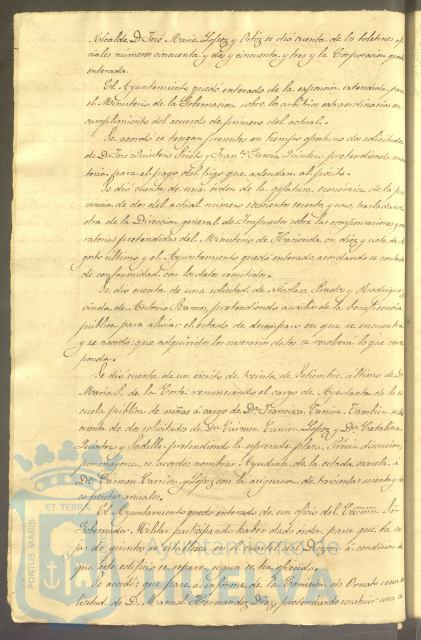 Alcalde Dn. José María Lopez y Ortiz se dió cuenta de los boletines ofi
ciales números cincuenta y dos y cincuenta y tres y la Corporacion quedó
enterada.
El Ayuntamiento quedó enterado de la esposicion estendida para
el Ministerio de la Gobernacion sobre los arbitrios estraordinarios en
cumplimiento del acuerdo de primero del actual.
Se acordó se tengan presentes en tiempo oportuno dos solicitudes
de Dn. José Quintero Prieto y Franco. García Quintero pretendiendo
para el pago del trigo que adeudan al pósito.
Se dió cuenta de una órden de la gefatura económica de la pro
vincia de dos del actual número trescientos ochenta y uno, trasladando
otra de la Direccion general de Impuestos sobre las compensaciones y mo
ratorias pretendidas del Ministerio de Hacienda en diez y siete de A
gosto último y el Ayuntamiento quedó enterado acordando se conteste
de conformidad con los datos remitidos.
Se dió cuenta de una solicitud de Nicolasa Prados y Rodriguez
viuda de Antonio Ramos, pretendiendo ausilios de la beneficencia
pública para aliviar el estado de desamparo en que se encuentra
y se acordó: que adquiridos los necesarios datos se resolverá lo que corres
ponda.
Se dió cuenta de un escrito de treinta de Setiembre último de Da.
María P. de la Corte renunciando el cargo de Ayudanta de la es
cuela pública de niñas á cargo de Da. Francisca Carrion. Tambien se dió
cuenta de dos solicitudes de Da. Carmen Carrion Lopez y Da. Catalina
Quintero y Padilla pretendiendo la espresada plaza. Prévia discusion,
por mayoría, se acordó nombrar Ayudanta de la citada escuela á
Da. Carmen Carrion y Lopez con la asignacion de trescientas sesenta y cin
co pesetas anuales.
El Ayuntamiento quedó enterado de un oficio del Excmo. Sor.
Gobernador Militar participando haber dado orden para que la ca
ja de quintos se establezca en el cuartel de á condicion de
que este edificio se repare segun se ha ofrecido.
Se acordó: que pase á informe de la Comision de Ornato una so
licitud de D. Manuel Hernandez Diaz pretendiendo construir una a
PORTUS MARIS
ET TERRÆ
Ayuntamiento de
HUELVA